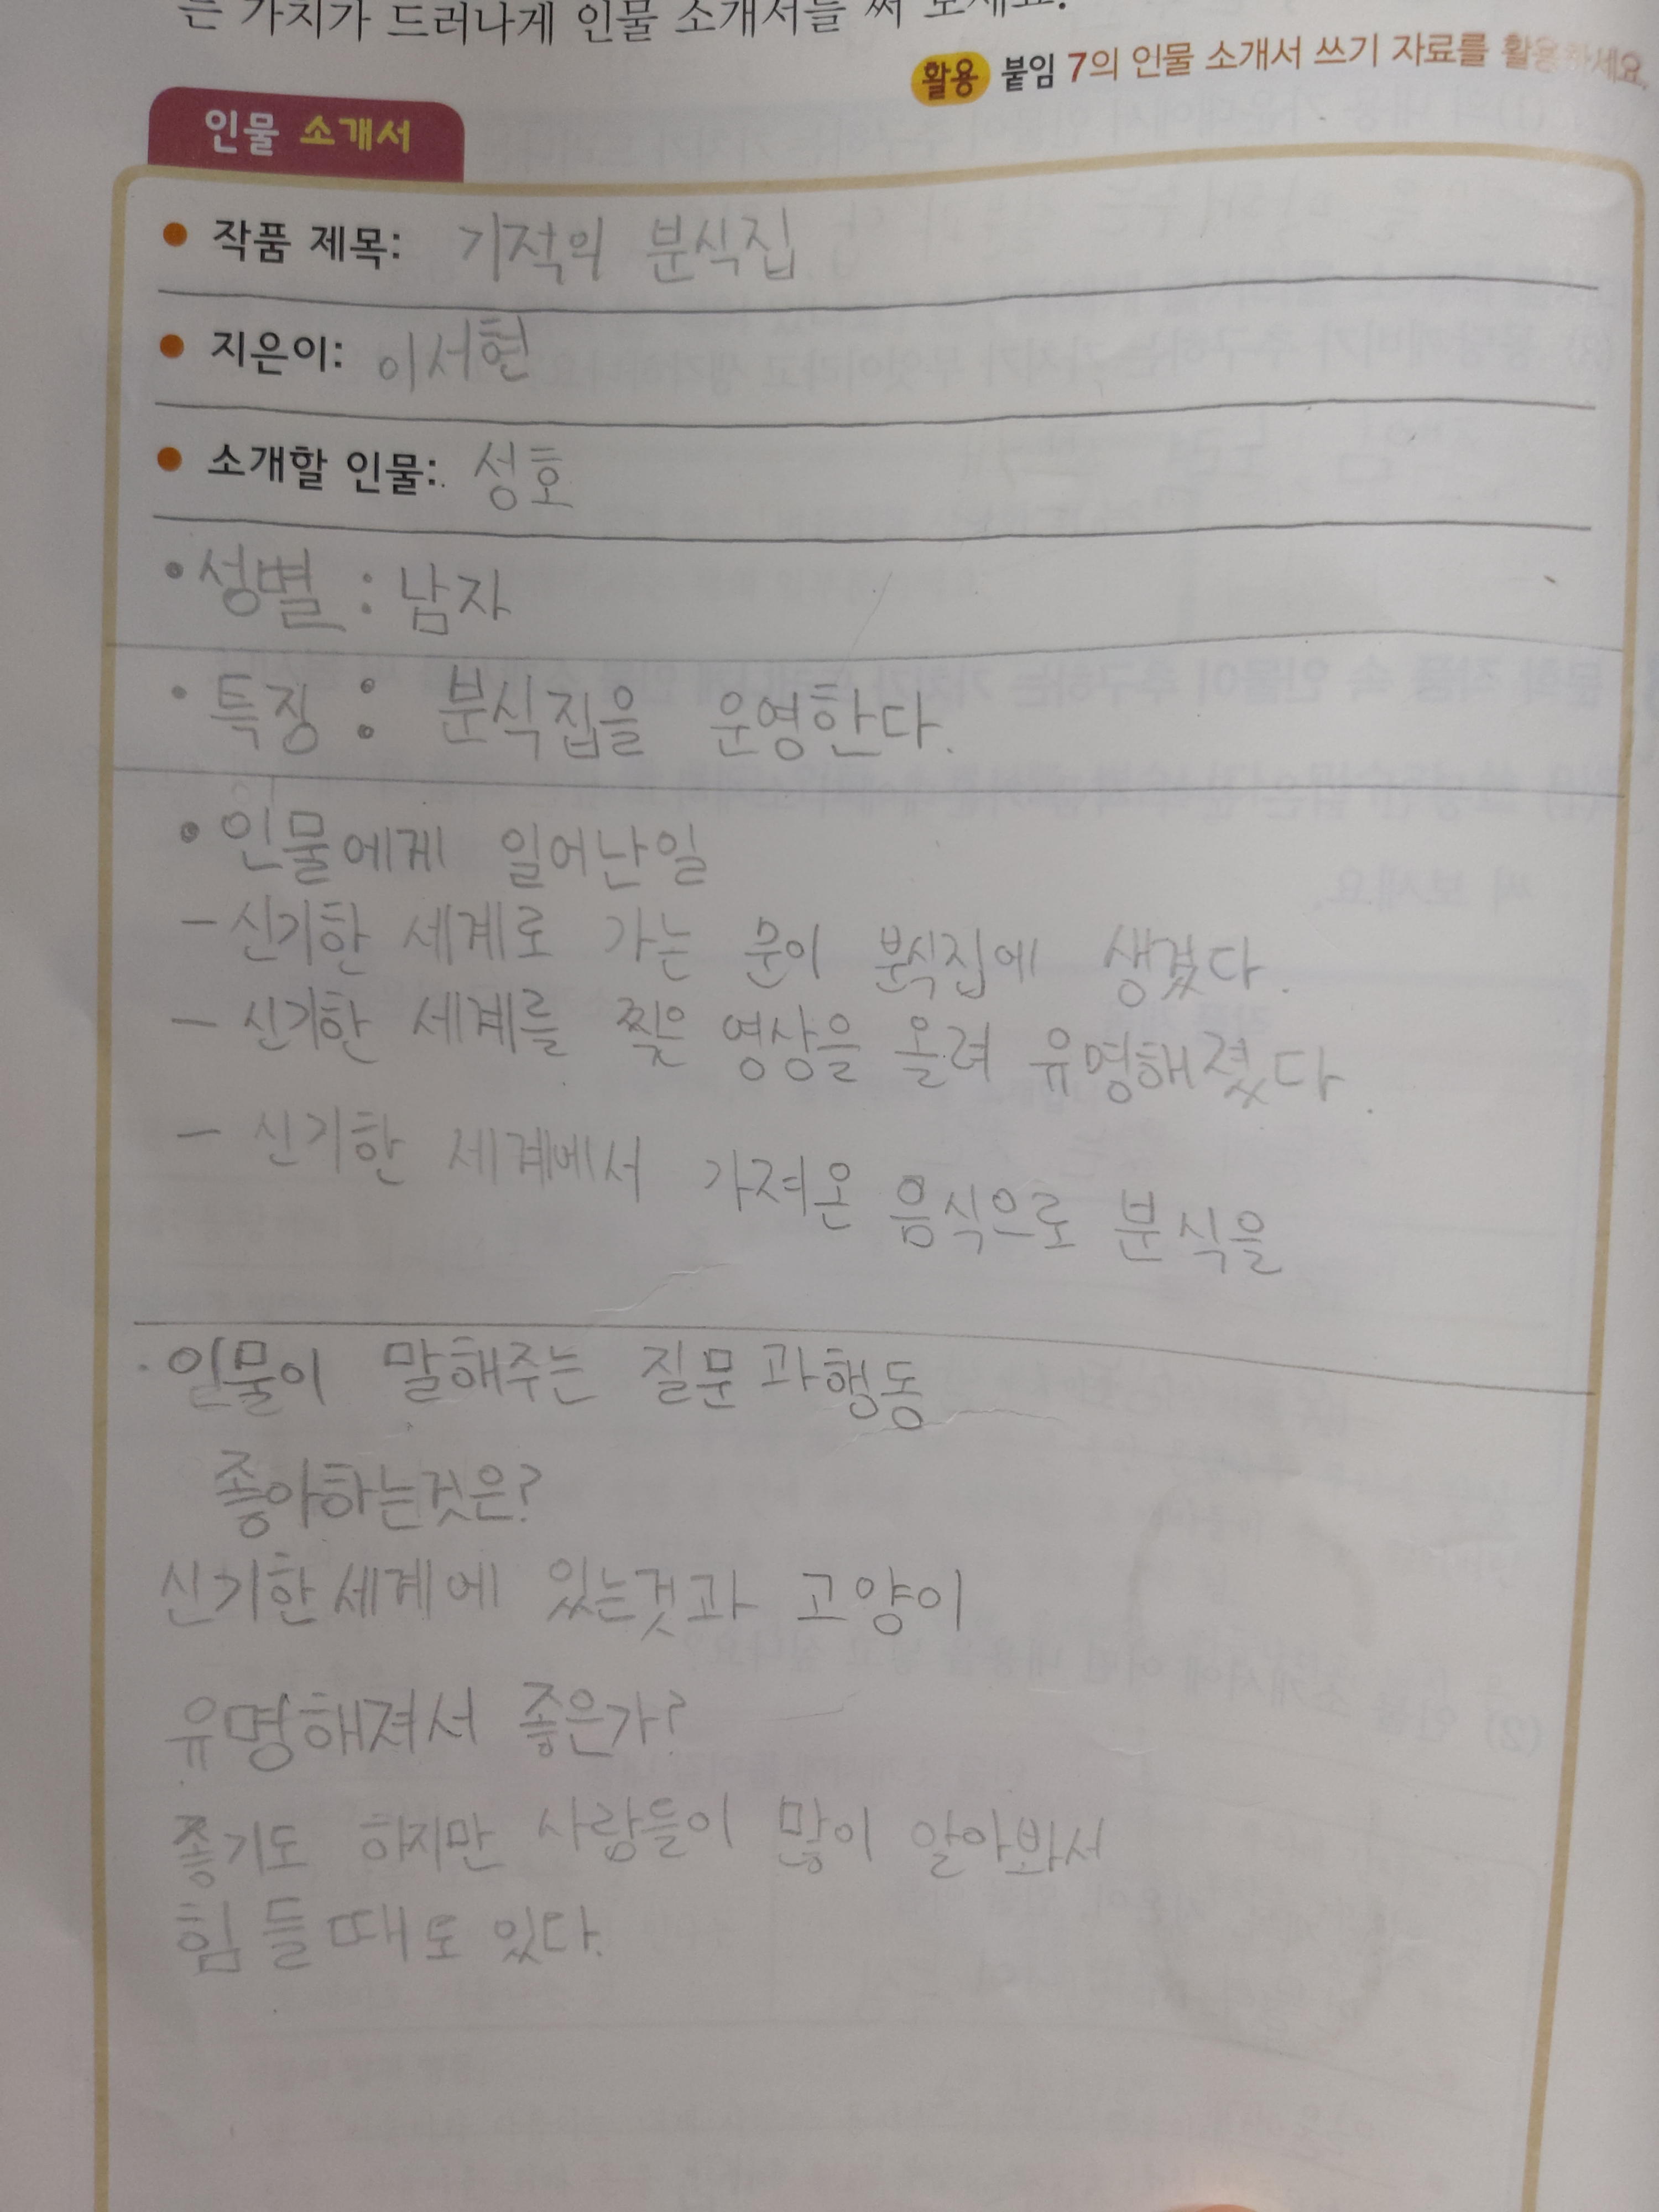 는 가치가 드러나게 인물 소개서를 써 보세요.
활용 붙임 7의 인물 소개서 쓰기 자료를 활용하세요.
인물 소개서
● 작품 제목: 기적의 분식집
● 지은이: 이서현
● 소개할 인물: 성호
• 성별 : 남자
• 특징 : 분식집을 운영한다.
• 인물에게 일어난일
- 신기한 세계로 가는 문이 분식집에 생겼다.
- 신기한 세계를 찢은 영상을 올려 유명해졌다.
- 신기한 세계에서 가져온 음식으로 분식을
· 인물이 말해주는 질문과행동
좋아하는것은?
신기한세계에 있는것과 고양이
유명해져서 좋은가?
좋기도 하지만 사람들이 많이 알아봐서
힘들때도 있다.